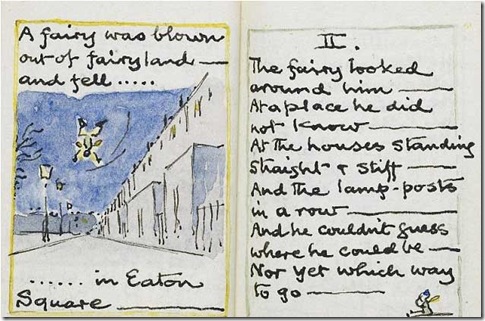 A fairy was blown
out of fairyland —
and fell .....
...... in Eaton
Square —
II.
The fairy looked
around him —
At a place he did
not know —
At the houses standing
straight & stiff —
And the lamp-posts
in a row —
And he couldn't guess
where he could be —
Nor yet which way
to go —